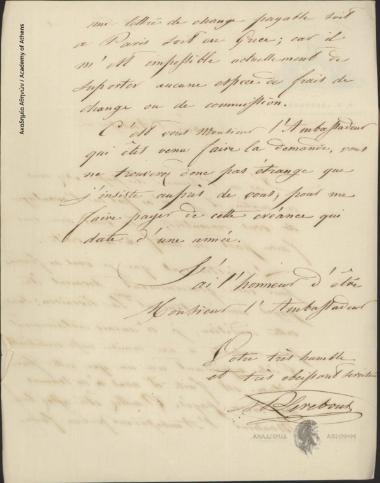 une lettre de change payable soit
a Paris soit en Grèce; car il
m'est impossible actuellement de
suporter aucune espèce de frais de
change ou de commission.
C'est vous Monsieur l'Ambassadeur
qui êtes venu faire la demande, vous
ne trouverez donc pas étrange que
j'insiste auprès de vous, pour me
faire payer de cette créance qui
date d'une année.
J'ai l'honneur d'être
Monsieur l'Ambassadeur
Votre très humble
et très obeissant serviteur
Ακαδημία Αθηνών / Academy of Athens
ΑΚΑΔΗΜΙΑ ΑΘΗΝΩΝ